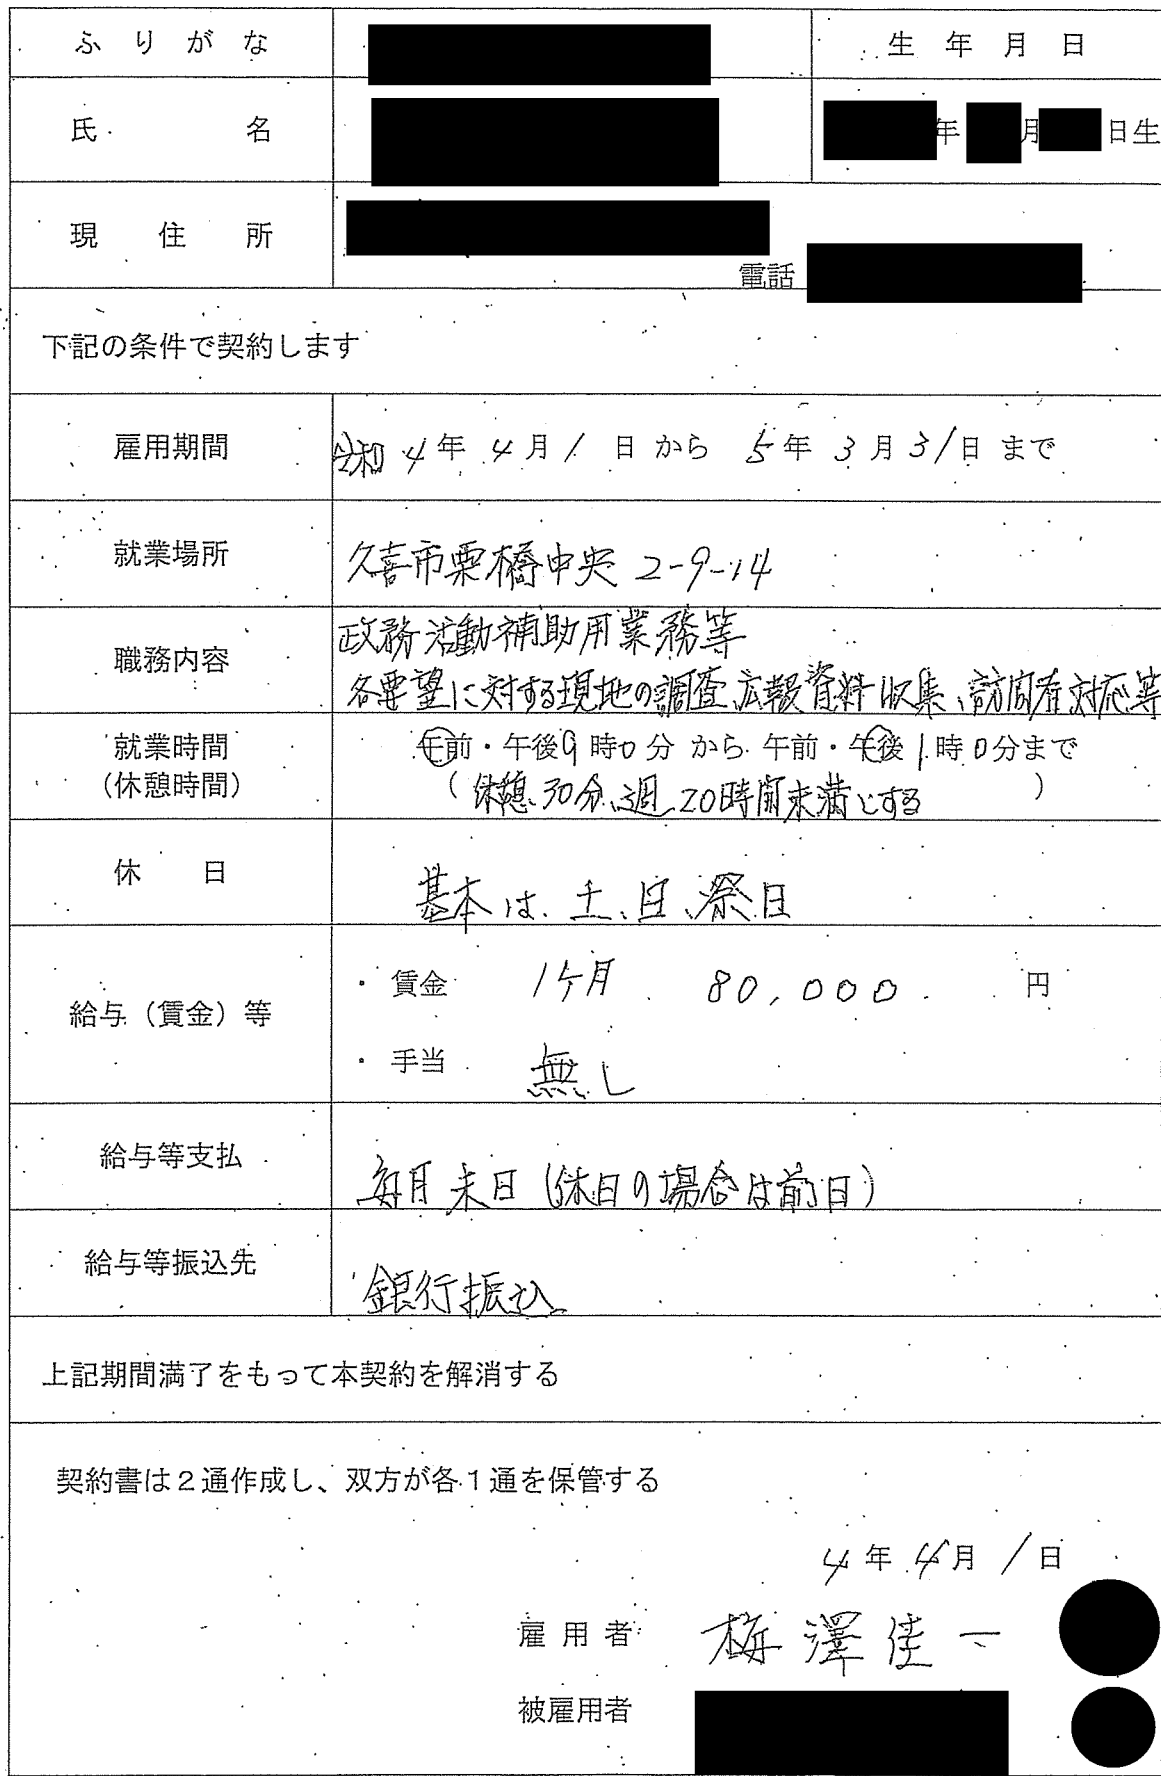 ふりがな
生年月日
氏名
年 月 日生
現住所
電話
下記の条件で契約します
雇用期間
令和4年4月1日から 5年3月31日まで
就業場所
久喜市栗橋中央2-9-14
職務内容
政務活動補助用業務等
各要望に対する現地の調査、広報資料収集、訪問者対応等
就業時間
(休憩時間)
午前・午後9時0分から 午前・午後1時0分まで
(休憩30分、週20時間未満とする)
休日
基本は、土、日、祭日
給与(賃金)等
・賃金 1ヶ月 80,000. 円
・手当 無し
給与等支払
毎月末日(休日の場合は前日)
給与等振込先
銀行振込
上記期間満了をもって本契約を解消する
契約書は2通作成し、双方が各1通を保管する
4年4月1日
雇用者 梅澤佳一
被雇用者